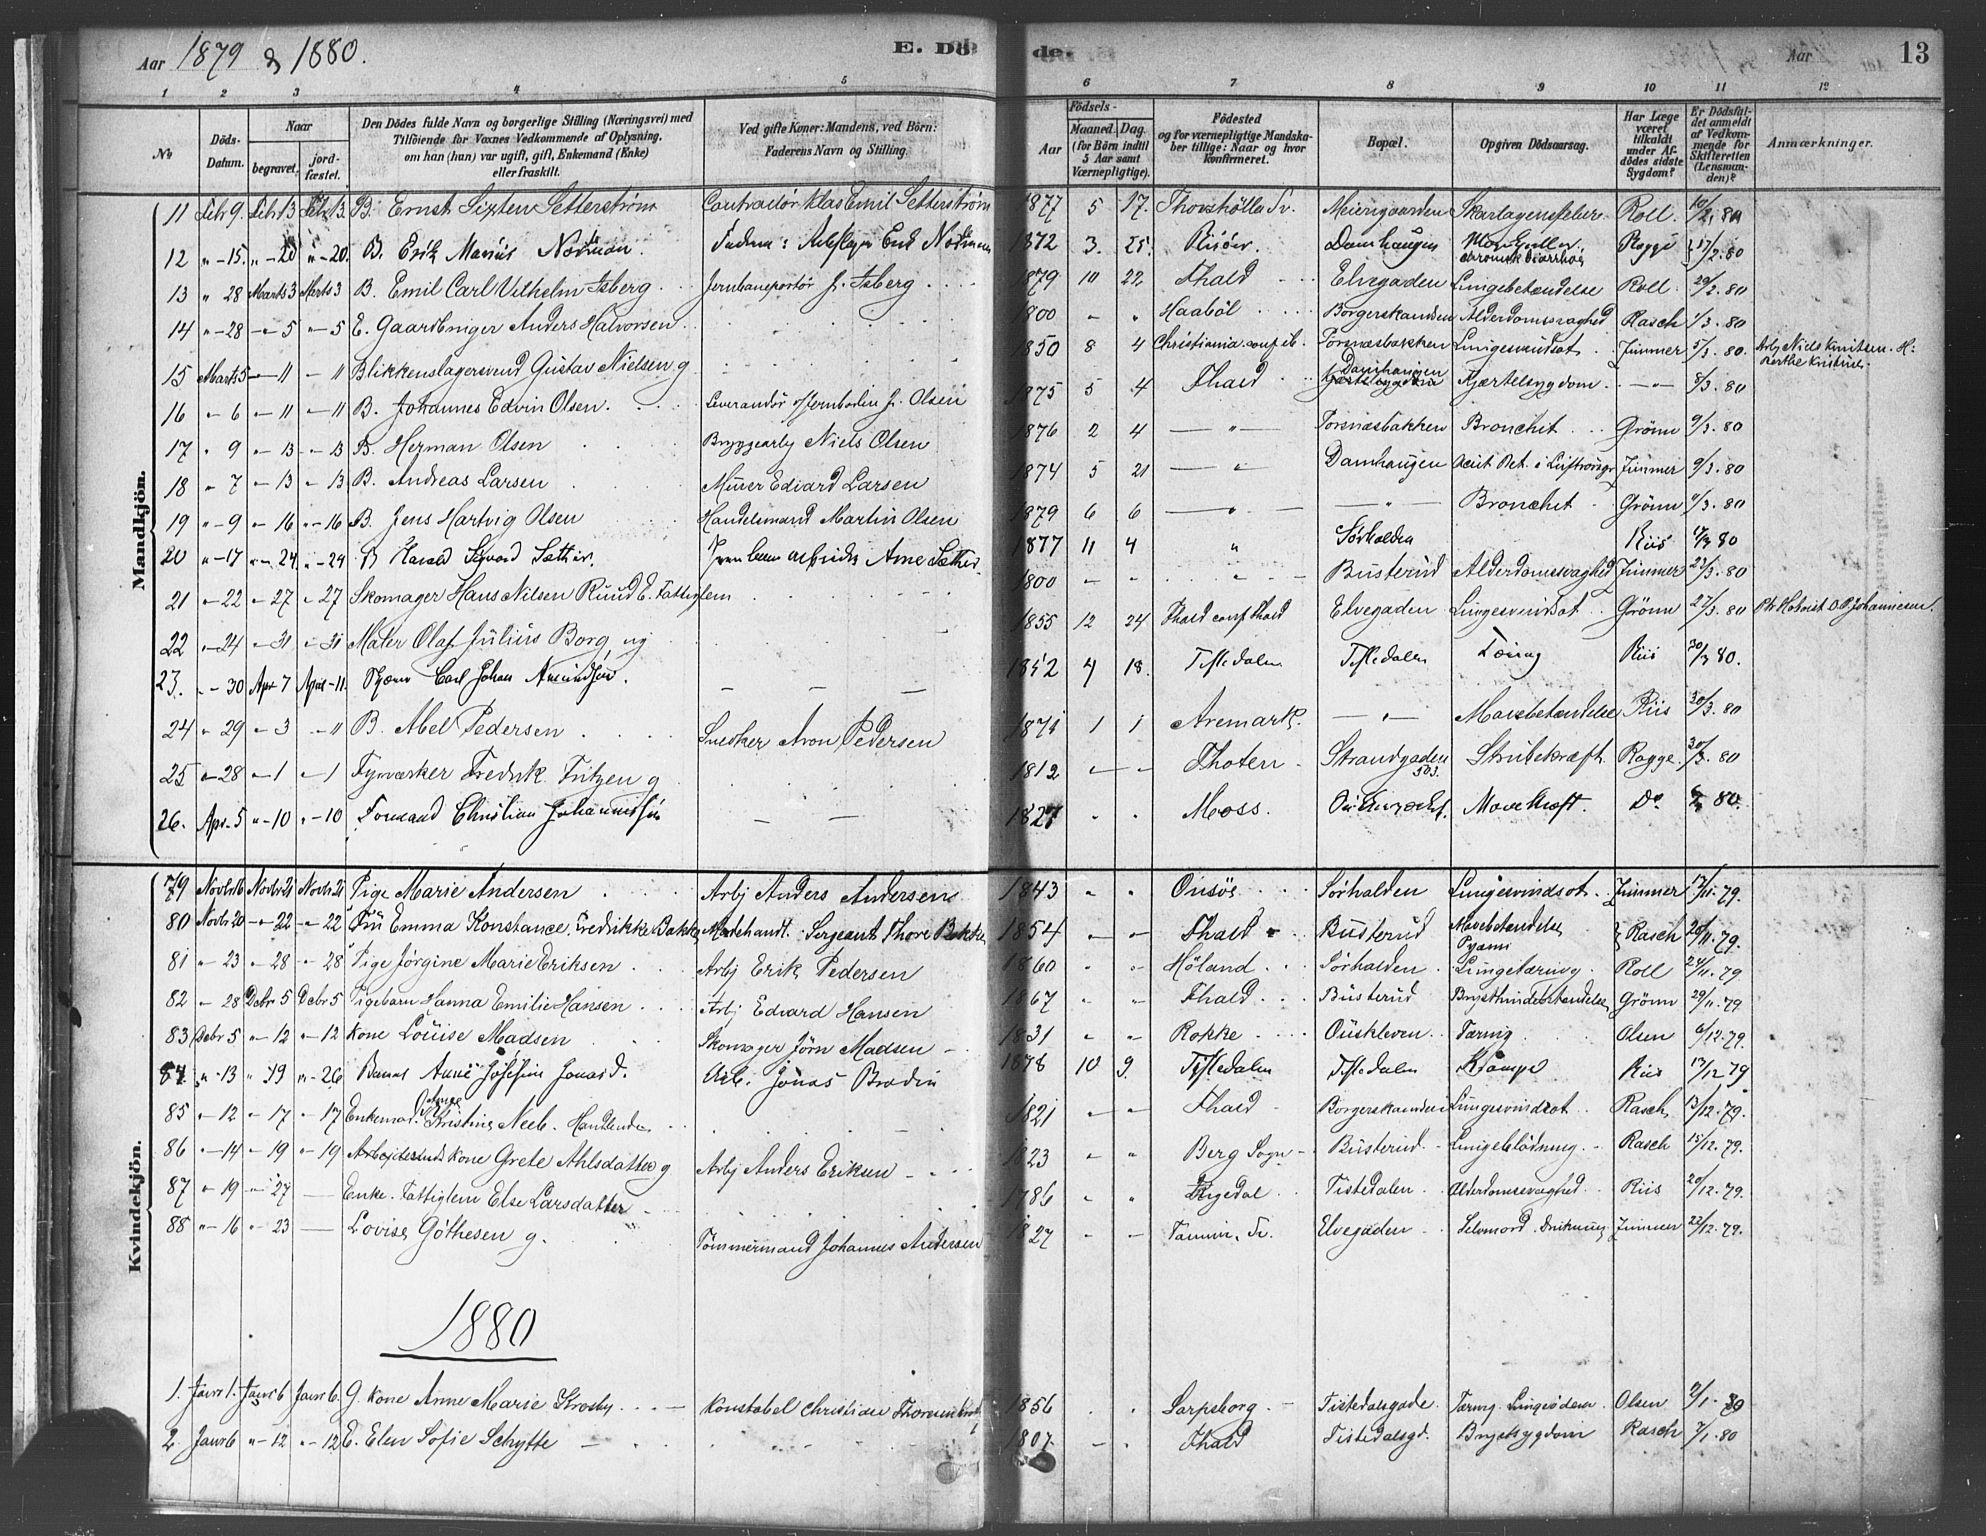 Aar 1879 & 1880. E. Dö de. Aar 13
1 2 3 4 5 6 7 8 9 10 11 12
No Döds-Datum. Naar begravet. jordfæstet. Den Dödes fulde Navn og borgerlige Stilling (Næringsvei) med Tilföiende for Voxnes Vedkommende af Oplysning, om han (hun) var ugift, gift, Enkemand (Enke) eller fraskilt. Ved gifte Koner: Mandens, ved Börn: Faderens Navn og Stilling. Födsels- Aar Maaned. Dag. (for Börn indtil 5 Aar samt Værnepligtige). Födested og for værnepligtige Mandskaber tillige: Naar og hvor konfirmeret. Bopæl. Opgiven Dödsaarsag. Har Læge været tilkaldt under Afdödes sidste Sygdom? Er Dödsfaldet anmeldt af Vedkommende for Skifteretten (Lensmanden)? Anmærkninger.
Mandkjön.
11 Febr 9. Febr 13 Febr 13. B. Ernst Sixten Setterström Contradör Klas Emil Setterström 1877 5 17. Meiergaarden Skarlagensfeber Roll. 10/2. 80
12 " - 15. " - 20 " - 20. B. Erik Marius Nordman. 1872 3. 25. Risör. Damhaugen chronisk Diarrhoe Rogge 17/2. 80
13 " 28 Marts 3 Marts 3 B. Emil Carl Vilhelm Isberg Jernbaneportör J. Isberg 1879 10 22 Fhald Elvegaden Lungebetændelse Roll. 29/2. 80
14 " - 28 " - 5 " - 5 E. Gaardbruger Anders Halvorsen 1800 - " Haaböl Borgerskanden Alderdomssvaghed Rasch 1/3. 80
15 Marts 5 " - 11 " - 11 Blikkenslagersvend Gustav Nielsen g 1850 8 4 Christiania conf ib. Torsnæsbakken Lungesvindsot Jimmer 5/3. 80. Arb. Niels Knutsen
16 " - 6 " - 11 " - 11 B. Johannes Edvin Olsen. J. Olsen 1875 5 4 Fhald Damhaugen Kjertelsygdom - " - 8/3. 80
17 " 9 " - 13 " - 13 B. Herman Olsen Bryggearb Niels Olsen 1876 2 4 - " - Torsnæsbakken Bronchit Grönn 9/3. 80
18 " 7 " - 13 " - 13 B. Andreas Larsen Murer Edvard Larsen 1874 5 21 - " - Damhaugen Jimmer 9/3. 80
19 " - 9 " - 16 " - 16 B. Jens Hartvig Olsen Handelsmand Martin Olsen 1879 6 6 - " - - " - Bronchit Grönn 9/3. 80
20 " - 17 " - 24 " - 24 B Harald Sigvard Sæther. Arne Sæther. 1877 11 4 " Sörhalden Riis 17/3 80
21 " - 22 " - 27 " - 27 Skomager Hans Nilsen Ruud E. Fattiglem 1800 - - - " - Busterud Alderdomssvaghed Jimmer 23/3. 80
22 " - 24 " - 31 " - 31 Maler Olaf Julius Borg, ug 1855 12 24 Fhald conf Fhald Elvegaden Lungesvindsot Grönn 27/3. 80
23. " - 30 Apr 7 Apr - 11. Carl Johan Amundsen. 1852 7 18. Tistedalen Tistedalen Tæring Riis 30/3 80.
24 " 29 " - 3 " - 11 B. Abel Pedersen Snedker Aron Pedersen 1871 1 1 Aremark. - " - Mavebetændelse Riis 30/3. 80
25 " - 28 " - 1 " - 1 Fyrværker Fredrik Fritzen g 1812 - - Thoten Strandgaden 503. Strubekræft. Rogge 30/3. 80
26. Apr. 5 " - 10 " - 10 Formand Christian Johannesen 1827 " " Moss. Mavekræft. Do 6/4 80.
Kvindekjön.
79 Novbr 16 Novbr 21 Novbr 21 Pige Marie Andersen Arbj Anders Andersen 1843 " " Onsöe Sörhalden Lungesvindsot Jimmer 17/11. 79.
80 Novbr 20 " - 22 " - 22 Fru Emma Konstance Fredrikke Bakke Sergeant Thore Bakke 1854 - - Fhald Busterud Mavebetændelse Pyæmi Rasch 20/11. 79.
81 " - 23 " - 28 " - 28 Pige Jörgine Marie Eriksen Arbj Erik Pedersen 1860 " " Höland Sörhalden Lungetæring Roll 24/11. 79
82 " - 28 Debr 5 Debr 5 Pigebarn Hanna Emilie Hansen Arbj Edvard Hansen 1867 " " Fhald. Busterud Brysthindebetændelse Grönn 29/11. 79
83 Debr 5 " - 12 " - 12 Kone Louise Madsen Skomager Jörn Madsen 1831 " " Rokke Ouskleven Tæring Olsen 6/12. 79.
84 " - 13 " 19 " - 26 Barns Anne Josefine Jonasd. Arb. Jonas Brodin 1878 10 9. Tistedalen Tistedalen Krampe Riis 17/12 79
85 " - 12 " - 17 " - 17 Kristine Neeb. 1821 - " Fhald Borgerskanden Lungesvindsot Rasch 13/12. 79.
86 " - 14 " - 19 " - 19 Arbeiderinde kone Grete Ahlsdatter g Arbj Anders Eriksen 1823 " - Berg Sogn Busterud Lungeblödning Rasch 15/12. 79.
87 " - 19 " - 27 - Enke. Fattiglem Else Larsdatter 1786 " " Tistedalen. Alderdomssvaghed. Riis 20/12. 79.
88 " - 16 " - 23 - Lovise Göthesen g. Tömmermand Johannes Andersen 1827 - - Elvegaden Selvmord. Drukning Jimmer 22/12. 79.
1880
1. Janr 1. Janr 6 Janr 6. G. Kone Anne Marie Krosby Konstabel Christian 1856 " " Sarpsborg Tistedalsgade. Olsen 2/1. 80
2 Janr 6 " - 12 " - 12 E. Elen Sofie Schytte 1807. - " Fhald Tistedalsgd. Brystsygdom Rasch 7/1. 80